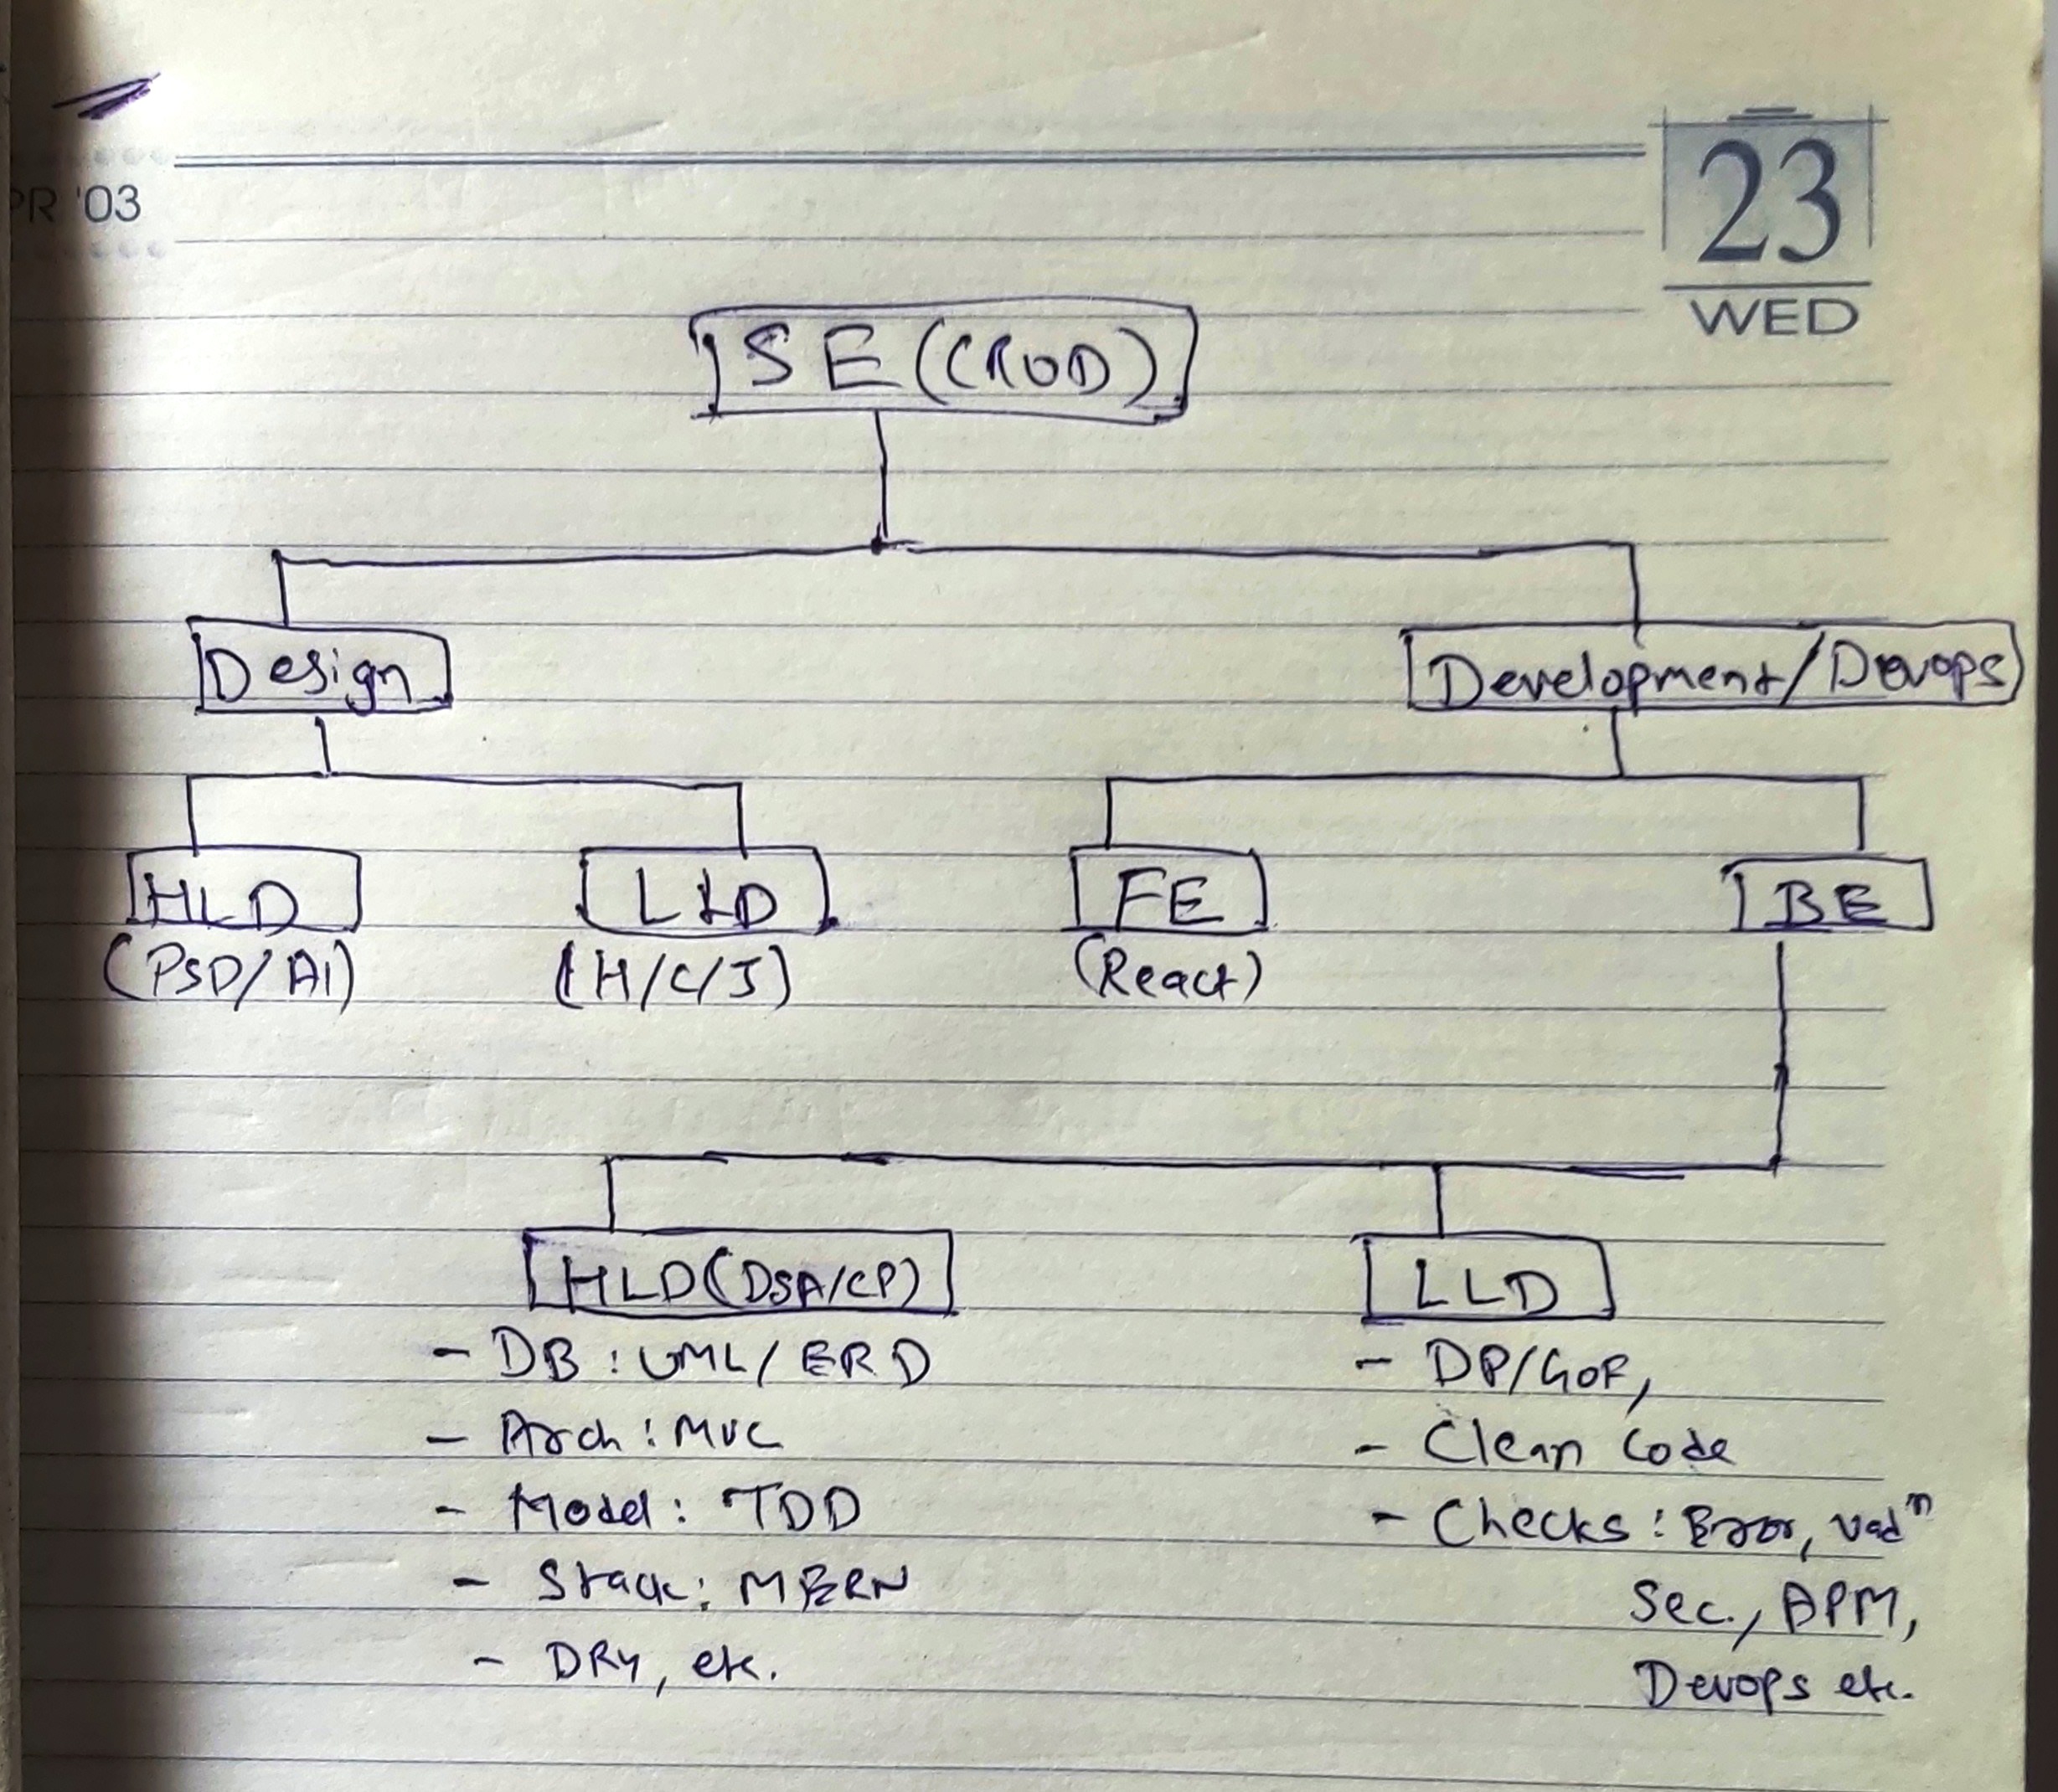 PR '03
23
WED
SE (CRUD)
Design
Development/Devops
HLD
LLD
FE
BE
(PSD/AI)
(H/C/J)
(React)
HLD (DSA/CP)
- DB : UML/ERD
- Arch : MVC
- Model : TDD
- Stack : MERN
- DRY, etc.
LLD
- DP/GOF,
- Clean Code
- Checks : Error,
Sec., APM,
Devops etc.